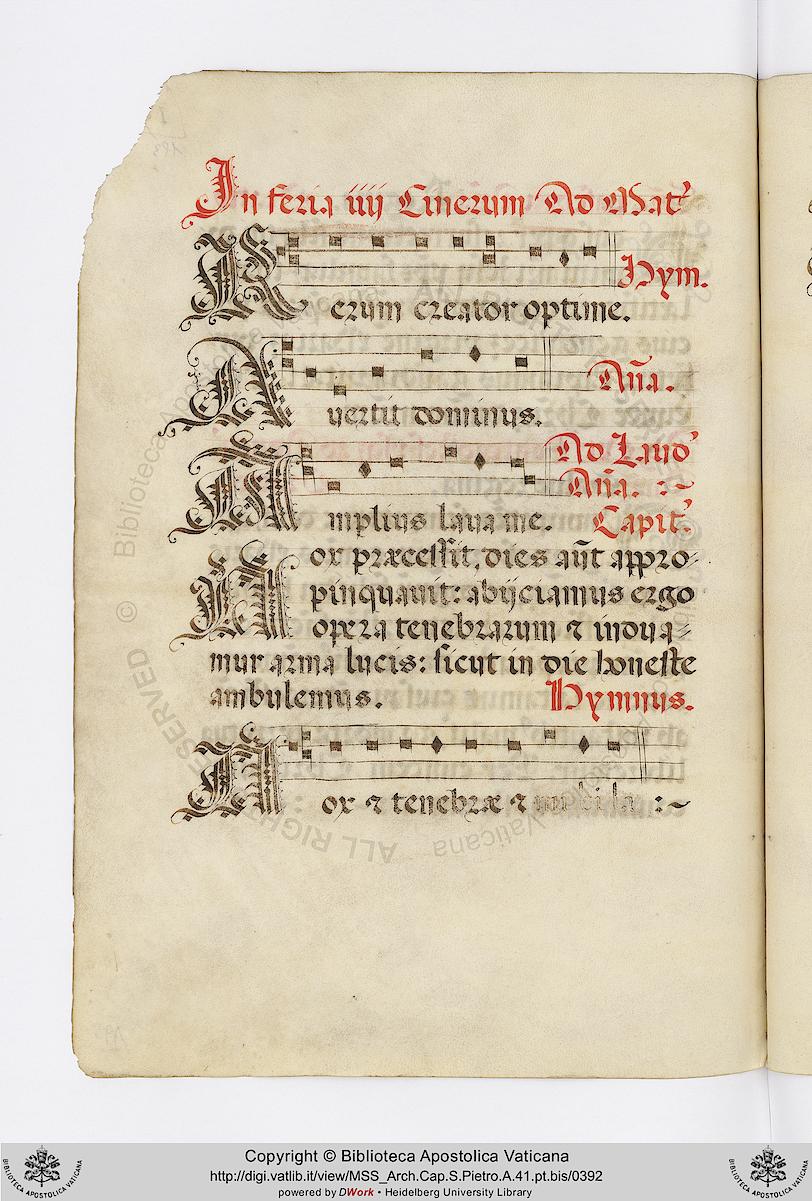 In feria iiij Cinerum Ad Mat̃
Hym.
Rerum creator optime.
Añа.
Avertit dominus.
Ad Laud̃
Añа. :~
Amplius lava me. Capit̃.
Nox præcessit, dies aũt appro-
pinquavit: abijciamus ergo
opera tenebrarum ⁊ indua=
mur arma lucis: sicut in die honeste
ambulemus. Hymnus.
Nox ⁊ tenebræ ⁊ nubila :~
© Biblioteca Apostolica Vaticana
ALL RIGHTS RESERVED
Copyright © Biblioteca Apostolica Vaticana
http://digi.vatlib.it/view/MSS_Arch.Cap.S.Pietro.A.41.pt.bis/0392
powered by DWork • Heidelberg University Library
BIBLIOTECA APOSTOLICA VATICANA
BIBLIOTECA APOSTOLICA VATICANA